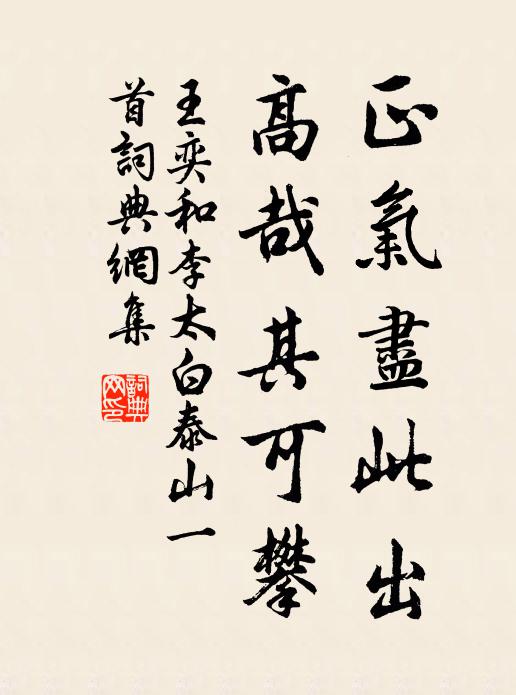 正氣盡此出
高哉其可攀
王奕和李太白泰山一
首詞典網集
詞典
网印